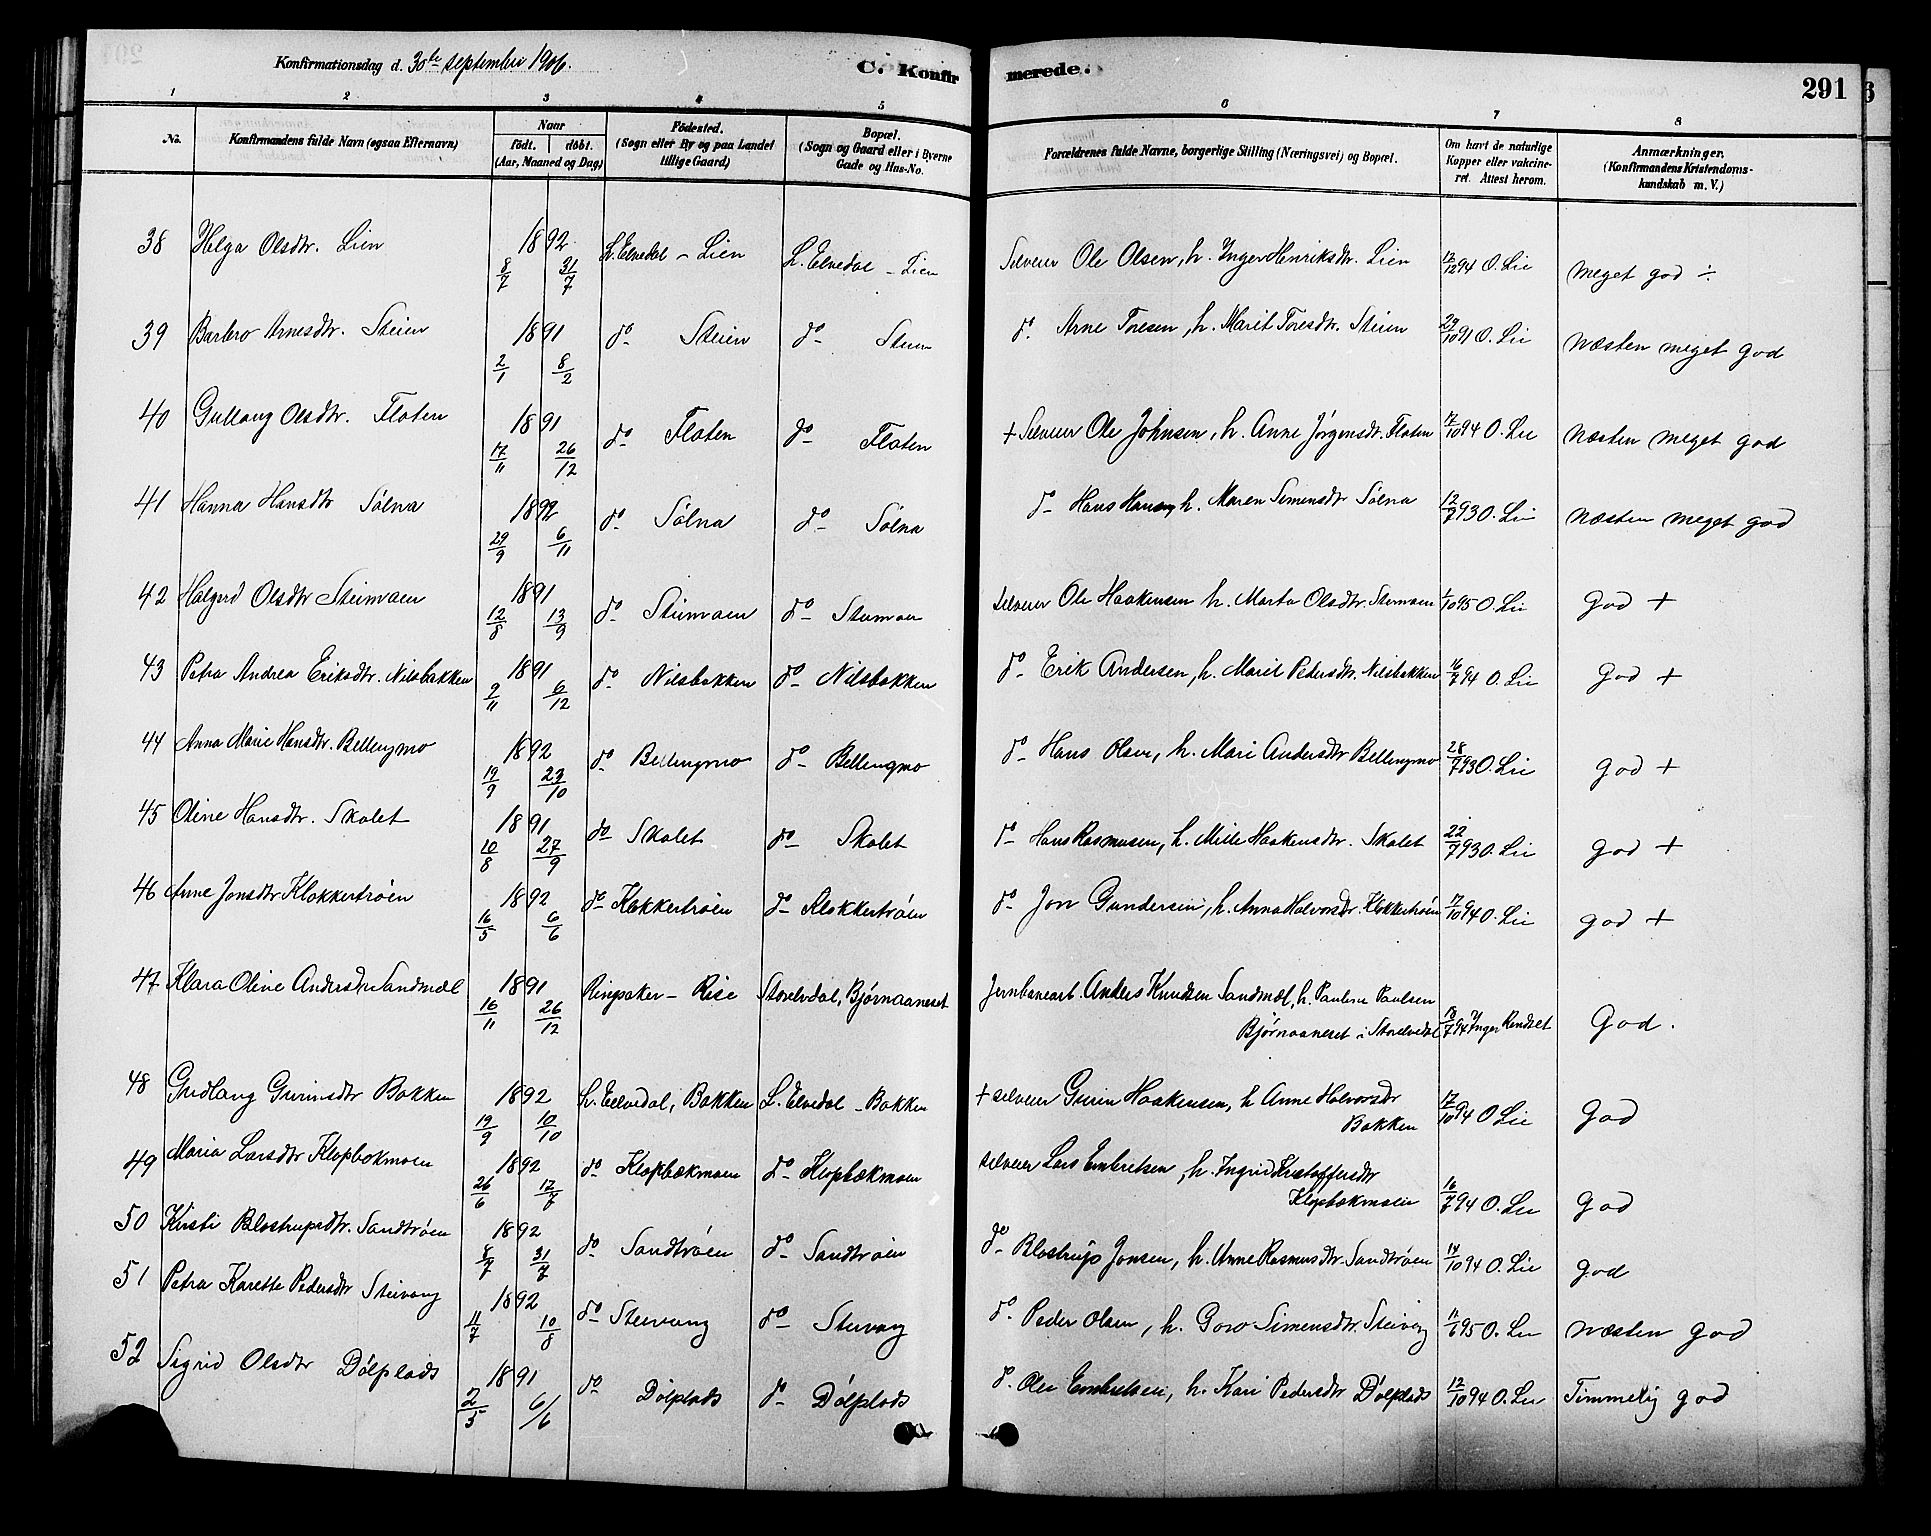 Konfirmationsdag d. 30te september 1906.
C. Konfirmerede.
291
1 2 3 4 5 6 7 8
No. Konfirmandens fulde Navn (ogsaa Efternavn) Naar født. døbt. (Aar, Maaned og Dag) Födested. (Sogn eller By og paa Landet tillige Gaard) Bopæl. (Sogn og Gaard eller i Byerne Gade og Hus-No. Forældrenes fulde Navne, borgerlige Stilling (Næringsvei) og Bopæl. Om havt de naturlige Kopper eller vakcineret. Attest herom. Anmærkninger. (Konfirmandens Kristendomskundskab m. V.)
38 Helga Olsdtr. Lien 1892 8/7 31/7 L. Elvedal - Lien L. Elvedal - Lien Selveier Ole Olsen, h. Inger Henriksdtr. Lien 12/12 94 O. Lie meget god ÷
39 Barbro Arnesdtr. Steien 1891 2/1 8/2 do Steien do Steien do Arne Toresen, h. Marit Toresdtr. Steien 29/10 91 O. Lie næsten meget god
40 Gullaug Olsdtr. Floten 1891 17/11 26/12 do Floten do Floten + Selveier Ole Johnsen, h. Anne Jørgensdtr. Floten 17/10 94 O. Lie næsten meget god
41 Hanna Hansdtr Sølna 1892 29/9 6/11 do Sølna do Sølna do Hans Hansen, h. Maren Simensdtr Sølna 12/7 93 O. Lie næsten meget god
42 Halgerd Olsdtr Steimoen 1891 12/8 13/9 do Steimoen do Steimoen selveier Ole Haakensen h. Marta Olsdtr. Steimoen 1/10 95 O. Lie god +
43 Petra Andrea Eriksdtr. Nilsbakken 1891 2/11 6/12 do Nilsbakken do Nilsbakken do Erik Andersen, h. Marit Pedersdtr. Nilsbakken 16/7 94 O. Lie god +
44 Anna Marie Hansdtr. Bellingmo 1892 19/9 23/10 do Bellingmo do Bellingmo do Hans Olsen, h. Mari Andersdtr Bellingmo 28/7 93 O. Lie god +
45 Oline Hansdtr. Skolet 1891 10/8 27/9 do Skolet do Skolet do Hans Rasmusen, h. Mille Haakensdtr. Skolet 22/7 93 O. Lie god +
46 Anne Jonsdtr Klokkertrøen 1892 16/5 6/6 do Klokkertrøen do Klokkertrøen do Jon Gundersen, h. Anna Halvorsdtr. Klokkertrøen 17/10 94 O. Lie god +
47 Klara Oline Andersdtr Sandmæl 1891 16/11 26/12 Ringsaker - Rise Storelvdal, Bjørnaaneset Jernbanearb. Anders Knudsen Sandmæl, h. Pauline Paulsen
Bjørnaaneset i Storelvedal 18/7 94 Inger Rendset God.
48 Gudlaug Gurinsdtr Bakken 1892 19/9 10/10 L. Elvedal, Bakken L. Elvedal - Bakken + selveier Gurin Haakensen, h Anne Halvorsdtr
Bakken 17/10 94 O Lie god
49 Maria Larsdtr Klopbækmoen 1892 26/6 17/7 do Klopbækmoen do Klopbækmoen selveier Lars Embretsen, h. Ingrid Kristoffersdtr
Klopbækmoen 16/7 94 O. Lie god
50 Kirsti Blostrupsdtr. Sandtrøen 1892 8/7 31/7 do Sandtrøen do Sandtrøen do Blostrup Jonsen, h. Anne Rasmusdtr. Sandtrøen 14/10 94 O. Lie god
51 Petra Karette Pedersdtr Steivang 1892 11/7 10/8 do Steivang do Steivang do Peder Olsen, h. Goro Simensdtr. Steivang 11/6 95 O. Lie næsten god
52 Sigrid Olsdtr Dølplads 1891 2/5 6/6 do Dølplads do Dølplads do Ole Embretsen, h. Kari Pedersdtr Dølplads 12/10 94 O. Lie Timmelig god